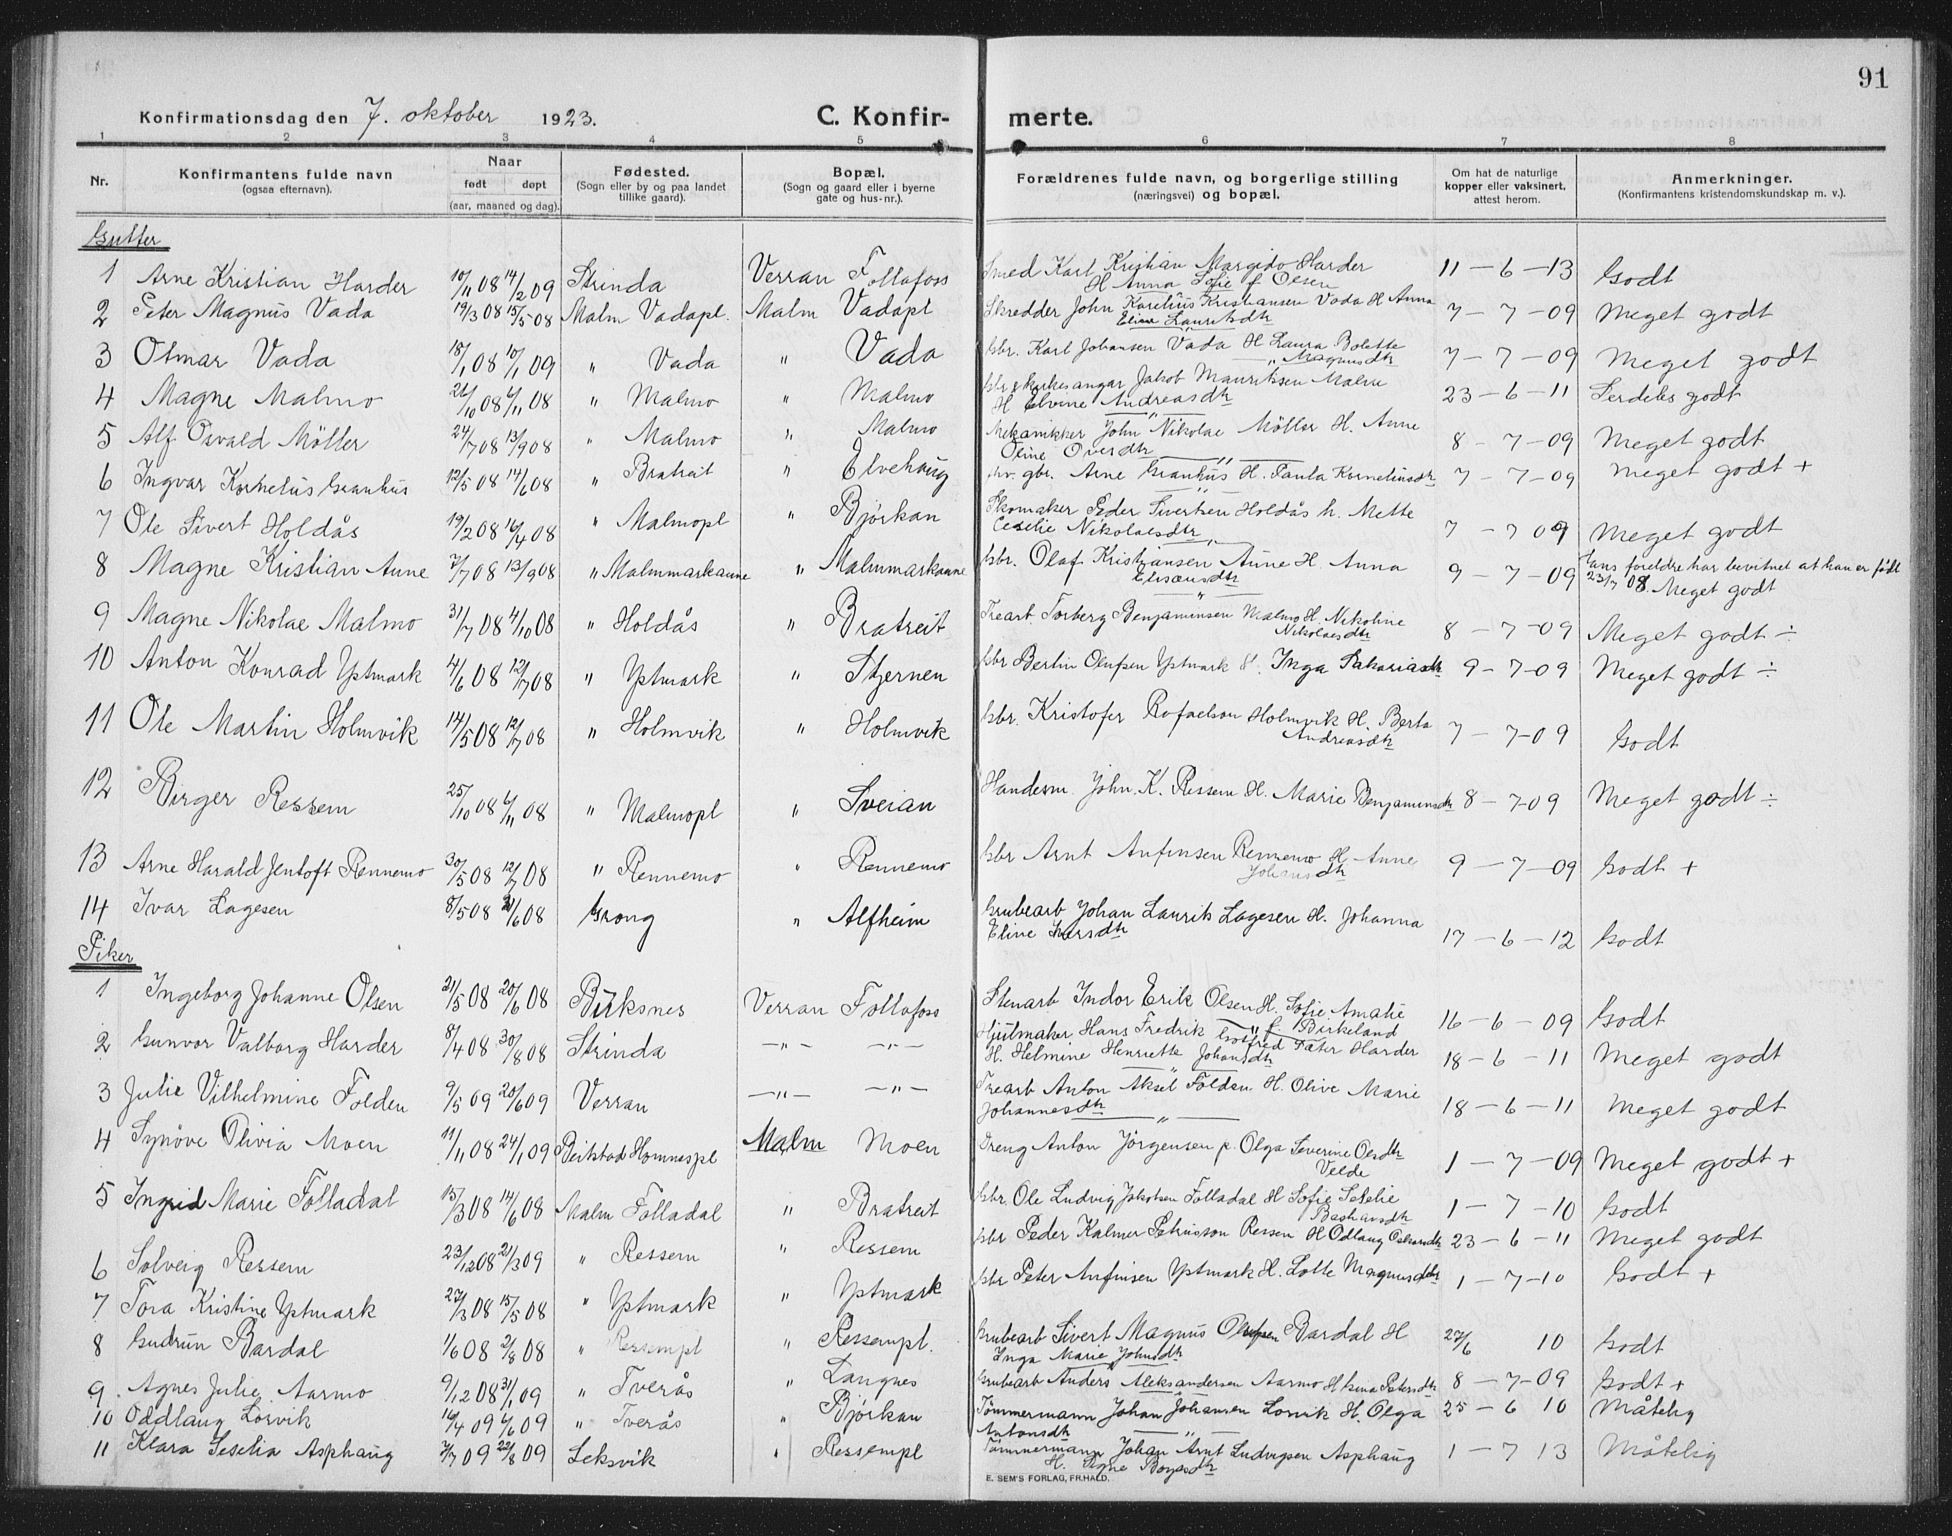 91
Konfirmationsdag den 7. oktober 1923. C. Konfirmerte.
1 2 3 4 5 6 7 8
Nr. Konfirmantens fulde navn (ogsaa efternavn). Naar født døpt (aar, maaned og dag). Fødested. (Sogn eller by og paa landet tillike gaard). Bopæl. (Sogn og gaard eller i byerne gate og hus-nr.). Forældrenes fulde navn, og borgerlige stilling (næringsvei) og bopæl. Om hat de naturlige kopper eller vaksinert, attest herom. Anmerkninger. (Konfirmantens kristendomskundskap m. v.).
Gutter
1 Arne Kristian Harder 10/11 08 14/2 09 Strinda Verran Follafoss Smed Karl Kristian Margido Harder H Anna Sofie f Olsen 11-6-13 Godt
2 Peter Magnus Vada 19/3 08 15/5 08 Malm Vadapl. Malm Vadapl Skredder John Karelius Kristiansen Vada H Anna Eline Lauritsdtr 7-7-09 Meget godt
3 Otmar Vada 18/1 08 10/1 09 " Vada " Vada Gbr. Karl Johansen Vada H Laura Bolette Magnusdtr 7-7-09 Meget godt
4 Magne Malmo 21/10 08 6/11 08 " Malmo " Malmo Gbr & kirkesanger Jakob Mauritssen Malmo H Elvine Andreasdtr 23-6-11 Serdeles godt
5 Alf Osvald Möller 24/7 08 13/9 08 " Malmo " Malmo Mekanikker John Nikolae Möller H. Anne Oline Oversdtr 8-7-09 Meget godt
6 Ingvar Kornelius Granhus 12/5 08 14/6 08 " Bratreit " Elvehaug gbr. Arne Granhus H. Paula Korneliusdtr 7-7-09 Meget godt +
7 Ole Sivert Holdås 19/2 08 16/4 08 " Malmopl " Bjørkan Skomaker Peder Sivertsen Holdås h. Mette Cecelie Nikolaesdtr 7-7 09 Meget godt
8 Magne Kristian Aune 2/7 08 13/9 08 " Malmmarkaune " Malmmarkaune Gbr. Olaf Kristjansen Aune H. Anna Eliseusdtr 9-7-09 Hans foreldre har bevitnet at han er født 23/7 08. Meget godt
9 Magne Nikolae Malmo 31/7 08 4/10 08 " Holdås " Bratreit Trearb Torberg Benjaminsen Malmo H. Nikoline Nikolaesdtr 8-7-09 Meget godt ÷
10 Anton Konrad Ystmark 4/6 08 12/7 08 " Ystmark " Stjernen Gbr Bertin Olufsen Ystmark H. Inga Sakariasdtr 9-7-09 Meget godt ÷
11 Ole Martin Holmvik 14/5 08 12/7 08 " Holmvik " Holmvik Gbr. Kristofer Rafaelsen Holmvik H. Berta Andreasdtr 7-7-09 Godt
12 Birger Ressem 25/10 08 6/11 08 " Malmopl " Sveian Handesm. John. K. Ressem H. Marie Benjaminsdtr 8-7-09 Meget godt ÷
13 Arne Harald Jentoft Rennemo 30/5 08 12/7 08 " Rennemo " Rennemo Gbr Arnt Anfinsen Rennemo H Anne Johansdtr 9-7-09 Godt +
14 Ivar Lagesen 8/5 08 21/6 08 Grong " Alfheim Grubearb Johan Laurits Lagesen H. Johanna Eline Iversdtr 17-6-12 Godt
Piker
1 Ingeborg Johanne Olsen 21/5 08 20/6 08 Buksnes Verran Follafoss Stenarb Indor Erik Olsen H. Sofie Amalie f Birkeland 16-6-09 Godt
2 Gunvor Valborg Harder 8/4 08 30/8 08 Strinda -"- -"- Hjulmaker Hans Fredrik Gotfred Peter Harder H. Helmine Henriette Johansdtr 18-6-11 Meget godt
3 Julie Vilhelmine Folden 9/5 09 20/6 09 Verran -"- -"- Trearb Anton Aksel Folden H. Olive Marie Johannesdtr 18-6-11 Meget godt
4 Synöve Olivia Moen 11/11 08 24/1 09 Beitstad Homnespl Malm Moen Dreng Anton Jörgensen p. Olga Severine Olsdtr Velde 1-7-09 Meget godt +
5 Ingrid Marie Folladal 15/3 08 14/6 08 Malm Folladal " Bratreit Gbr. Ole Ludvig Jakobsen Folladal H Sofie Seselie Bashansdtr 1-7-10 Godt
6 Solveig Ressem 23/12 08 21/3 09 " Ressem " Ressem Gbr Peder Kalmer Petrusson Ressem H Odlaug Oskarsdtr 23-6-11 Meget godt
7 Tora Kristine Ystmark 27/3 08 15/5 08 " Ystmark " Ystmark Gbr Peter Anfinsen Ystmark H. Lotte Magnusdtr 1-7-10 Godt +
8 Gudrun Bardal 1/6 08 2/8 08 " Ressempl " Ressempl. Grubearb Sivert Magnus Olufsen Bardal H Inga Marie Johnsdtr 27/6 10 Godt
9. Agnes Julie Aarmo 9/12 08 31/1 09 " Tverås " Langnes Grubearb Anders Aleksandersen Aarmo H Gina Petersdtr 8-7-09 Godt +
10 Oddlaug Lorvik 16/4 09 6/6 09 " Tverås " Bjørkan Tömmermann Johan Johansen Lorvik H. Olga Antonsdtr 25-6 10 Måtelig
11 Klara Seselia Asphaug 2/7 09 22/8 09 Leksvik " Ressempl Tömmermann Johan Arnt Ludvigsen Asphaug H. Signe Boyesdtr 1-7 13 Måtelig
E. SEM'S FORLAG, FR.HALD.